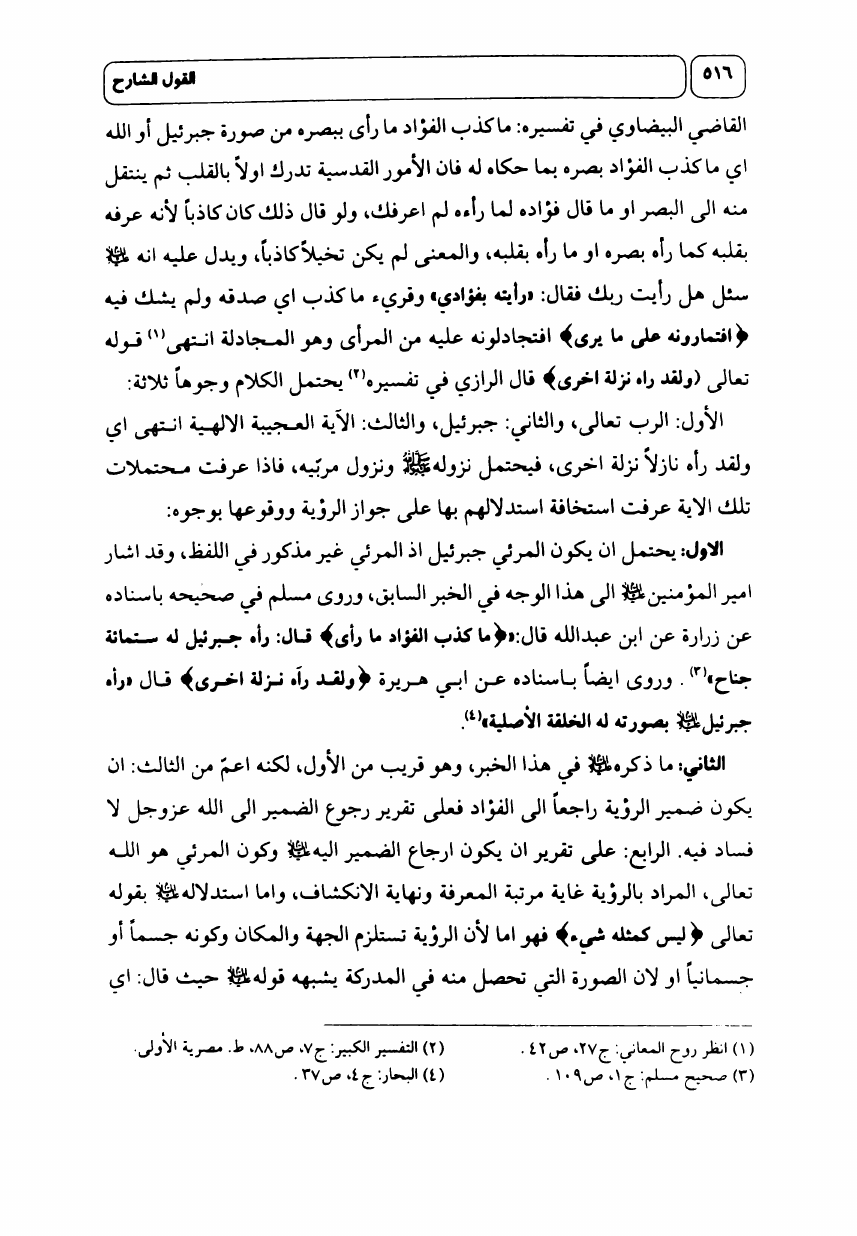 ٥١٦
القول الشارح
القاضي البيضاوي في تفسيره: ما كذب الفؤاد ما رأى ببصره من صورة جبرئيل أو الله
اي ما كذب الفؤاد بصره بما حكاه له فان الأمور القدسية تدرك اولاً بالقلب ثم ينتقل
منه الى البصر او ما قال فؤاده لما رأءه لم اعرفك، ولو قال ذلك كان كاذباً لأنه عرفه
بقلبه كما رأه بصره او ما رأه بقلبه، والمعنى لم يكن تخيلاً كاذباً، ويدل عليه انه ﷺ
سئل هل رأيت ربك فقال: «رأيته بفؤادي» وقريء ما كذب اي صدقه ولم يشك فيه
﴿افتمارونه على ما يرى﴾ افتجادلونه عليه من المرأى وهو المجادلة انتهى(١) قوله
تعالى (ولقد راه نزلة اخرى﴾ قال الرازي في تفسيره(٢) يحتمل الكلام وجوهاً ثلاثة:
الأول: الرب تعالى، والثاني: جبرئيل، والثالث: الآية العجيبة الالهية انتهى اي
ولقد رأه نازلاً نزلة اخرى، فيحتمل نزوله ﷺ ونزول مرئيه، فاذا عرفت محتملات
تلك الاية عرفت استخافة استدلالهم بها على جواز الرؤية ووقوعها بوجوه:
الاول: يحتمل ان يكون المرئي جبرئيل اذ المرئي غير مذكور في اللفظ، وقد اشار
امير المؤمنين عليه السلام الى هذا الوجه في الخبر السابق، وروى مسلم في صحيحه باسناده
عن زرارة عن ابن عبدالله قال: «﴿ما كذب الفؤاد ما رأى﴾ قال: رأه جبرئيل له ستمائة
جناح»(٣) . وروى ايضاً باسناده عن ابي هريرة ﴿ولقد رآه نزلة اخرى﴾ قال «رأه
جبرئيل عليه السلام بصورته له الخلقة الأصلية»(٤).
الثاني: ما ذكره عليه السلام في هذا الخبر، وهو قريب من الأول، لكنه اعمّ من الثالث: ان
يكون ضمير الرؤية راجعاً الى الفؤاد فعلى تقرير رجوع الضمير الى الله عزوجل لا
فساد فيه. الرابع: على تقرير ان يكون ارجاع الضمير اليه عليه السلام وكون المرئي هو الله
تعالى، المراد بالرؤية غاية مرتبة المعرفة ونهاية الانكشاف، واما استدلاله عليه السلام بقوله
تعالى ﴿ليس كمثله شيء﴾ فهو اما لأن الرؤية تستلزم الجهة والمكان وكونه جسماً أو
جسمانياً او لان الصورة التي تحصل منه في المدركة يشبهه قوله عليه السلام حيث قال: اي
(١) انظر روح المعاني: ج٢٧، ص٤٢ .
(٢) التفسير الكبير: ج٧، ص٨٨، ط. مصرية الأولى.
(٣) صحيح مسلم: ج١، ص١٠٩ .
(٤) البحار: ج٤، ص٣٧ .